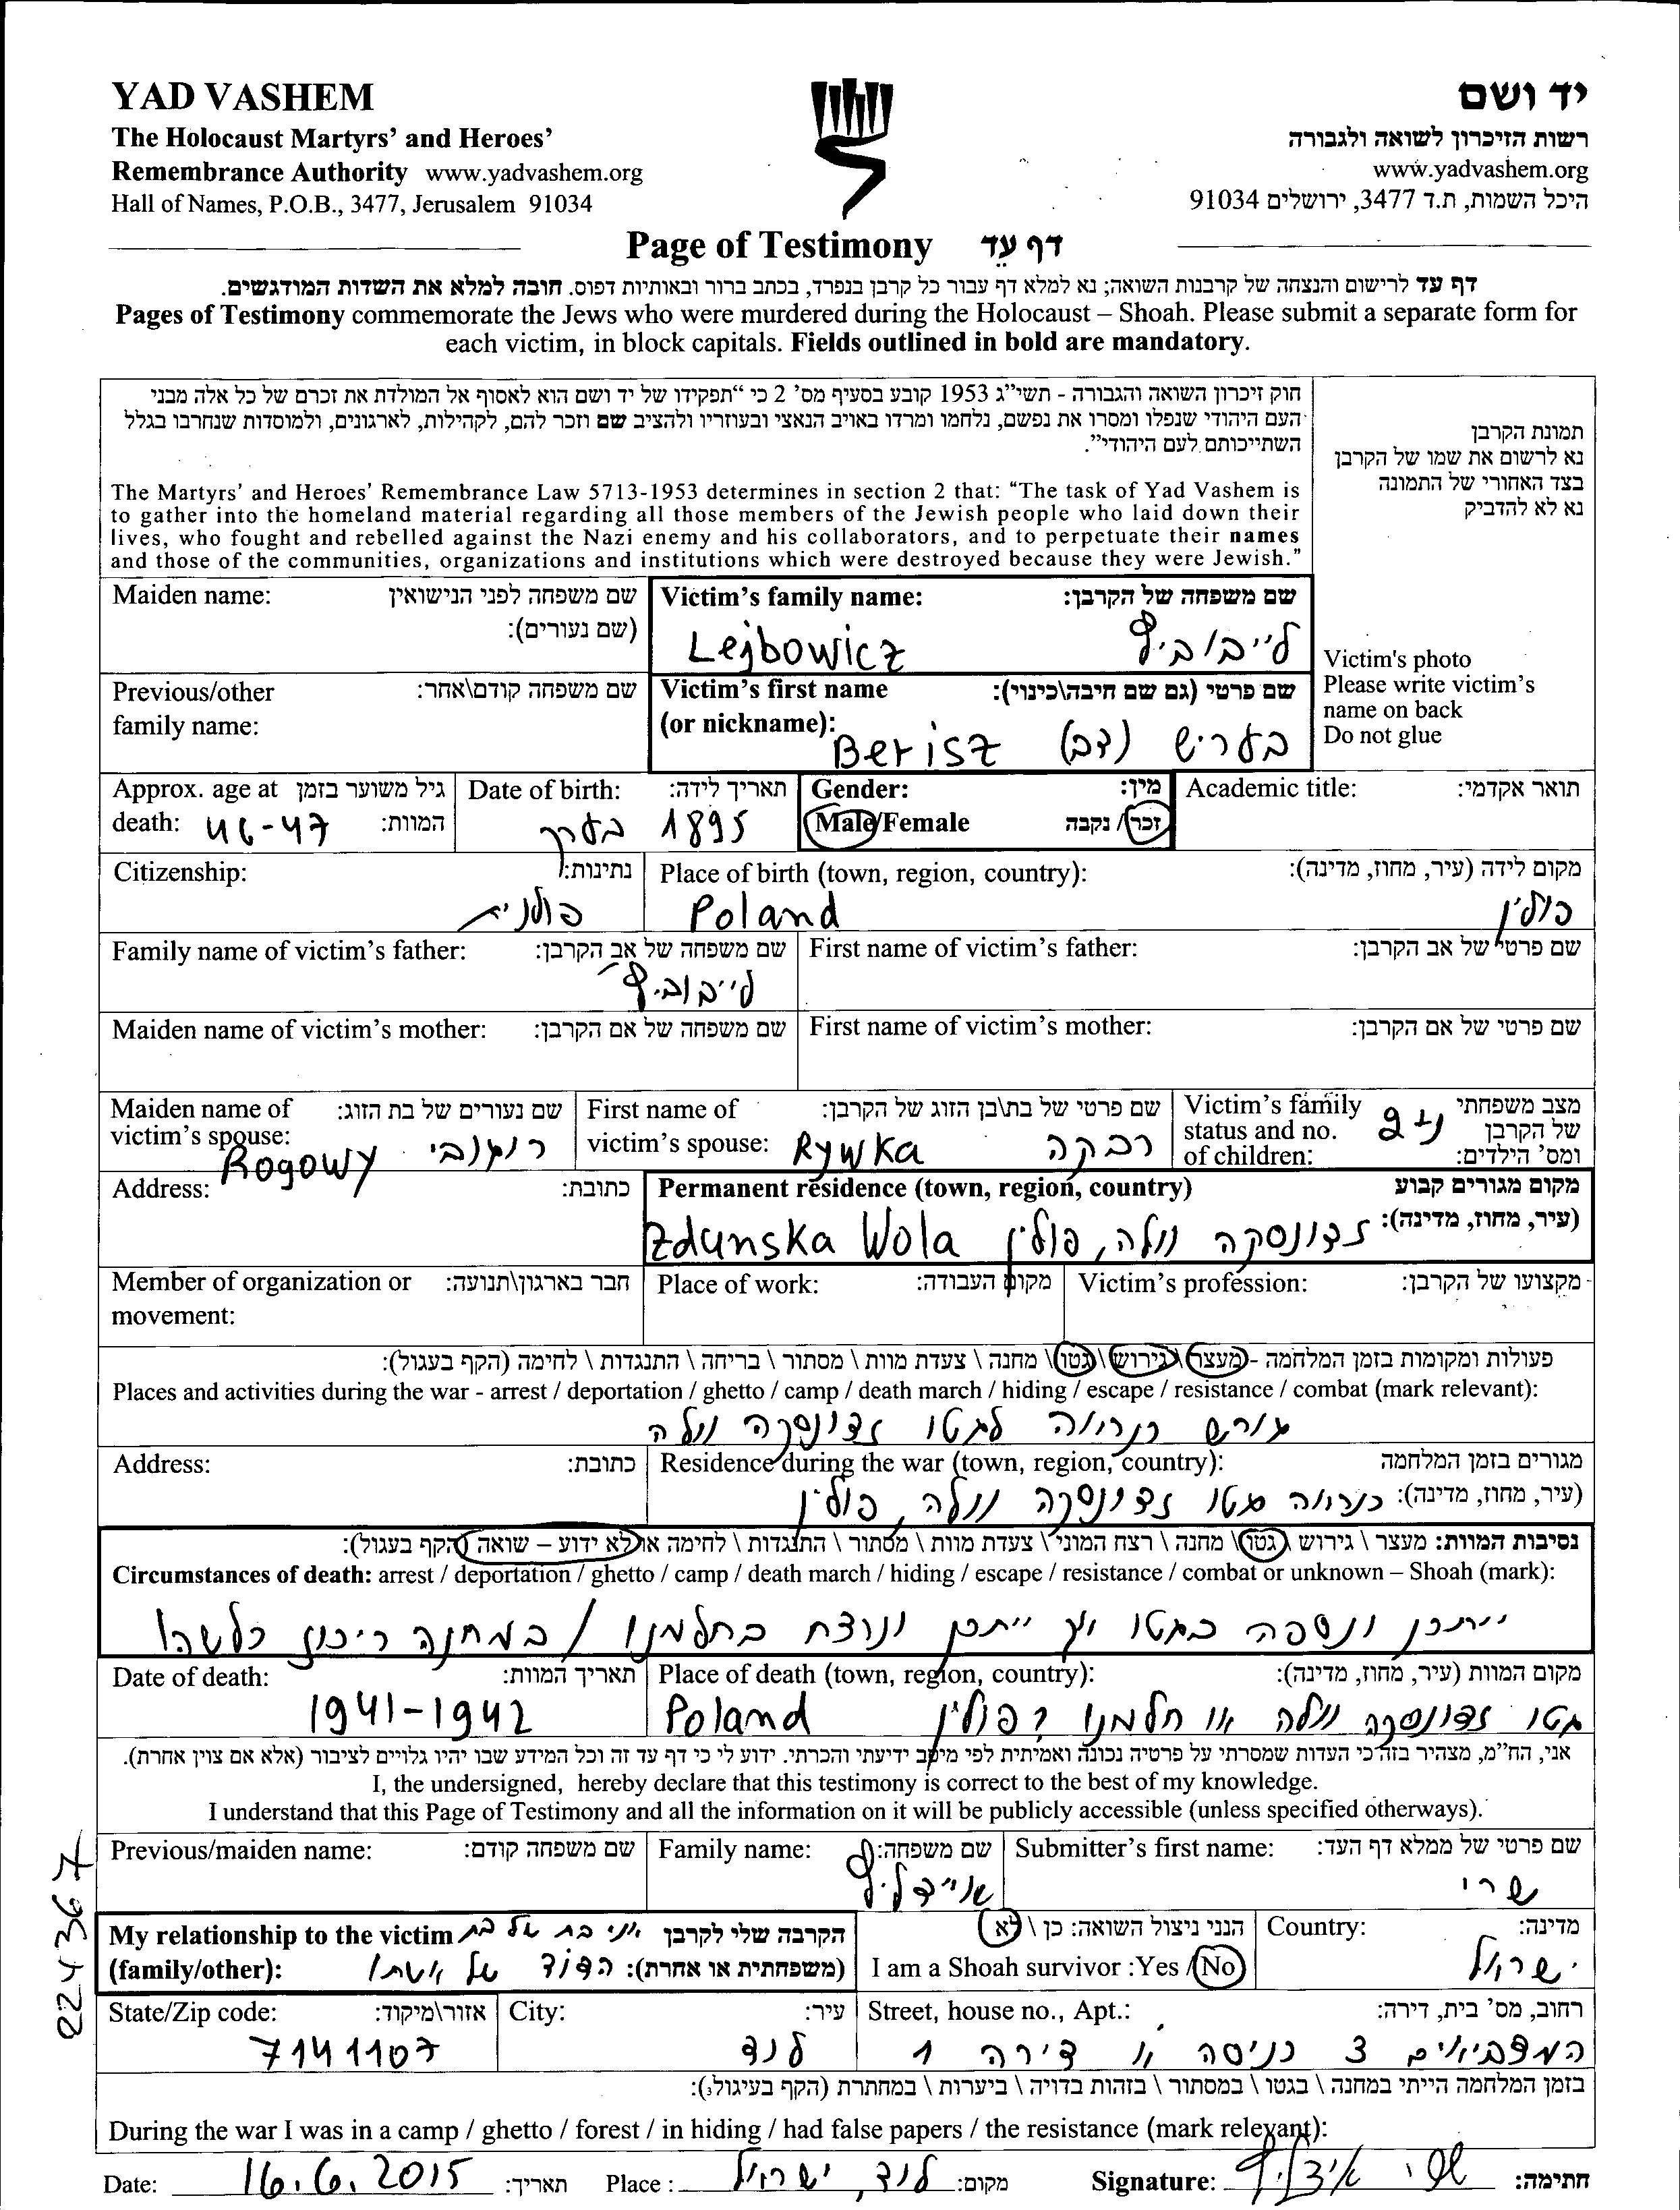 YAD VASHEM
The Holocaust Martyrs' and Heroes'
Remembrance Authority www.yadvashem.org
Hall of Names, P.O.B., 3477, Jerusalem 91034
יד ושם
רשות הזיכרון לשואה ולגבורה
www.yadvashem.org
היכל השמות, ת.ד 3477, ירושלים 91034
Page of Testimony דף עֵד
דף עד לרישום והנצחה של קרבנות השואה; נא למלא דף עבור כל קרבן בנפרד, בכתב ברור ובאותיות דפוס. חובה למלא את השדות המודגשים.
Pages of Testimony commemorate the Jews who were murdered during the Holocaust – Shoah. Please submit a separate form for
each victim, in block capitals. Fields outlined in bold are mandatory.
חוק זיכרון השואה והגבורה - תשי"ג 1953 קובע בסעיף מס' 2 כי "תפקידו של יד ושם הוא לאסוף אל המולדת את זכרם של כל אלה מבני
העם היהודי שנפלו ומסרו את נפשם, נלחמו ומרדו באויב הנאצי ובעוזריו ולהציב שם וזכר להם, לקהילות, לארגונים, ולמוסדות שנחרבו בגלל
השתייכותם לעם היהודי".
The Martyrs' and Heroes' Remembrance Law 5713-1953 determines in section 2 that: "The task of Yad Vashem is
to gather into the homeland material regarding all those members of the Jewish people who laid down their
lives, who fought and rebelled against the Nazi enemy and his collaborators, and to perpetuate their names
and those of the communities, organizations and institutions which were destroyed because they were Jewish."
תמונת הקרבן
נא לרשום את שמו של הקרבן
בצד האחורי של התמונה
נא לא להדביק
Victim's photo
Please write victim's
name on back
Do not glue
Maiden name: שם משפחה לפני הנישואין
(שם נעורים):
Victim's family name: שם משפחה של הקרבן:
Lejbowicz לייבוביץ
Previous/other שם משפחה קודם\אחר:
family name:
Victim's first name שם פרטי (גם שם חיבה\כינוי):
(or nickname): Berisz בעריש (דב)
Approx. age at גיל משוער בזמן
death: 46-47 המוות:
Date of birth: תאריך לידה:
1895 בערך
Gender: מין:
Male/Female זכר / נקבה
Academic title: תואר אקדמי:
Citizenship: נתינות:
פולנית
Place of birth (town, region, country): מקום לידה (עיר, מחוז, מדינה):
Poland פולין
Family name of victim's father: שם משפחה של אב הקרבן:
לייבוביץ
First name of victim's father: שם פרטי של אב הקרבן:
Maiden name of victim's mother: שם משפחה של אם הקרבן:
First name of victim's mother: שם פרטי של אם הקרבן:
Maiden name of שם נעורים של בת הזוג:
victim's spouse: Rogowy רוגובי
First name of שם פרטי של בת\בן הזוג של הקרבן:
victim's spouse: Rywka רבקה
Victim's family מצב משפחתי
status and no. של הקרבן
of children: ומס' הילדים:
Address: כתובת:
Permanent residence (town, region, country) מקום מגורים קבוע
(עיר, מחוז, מדינה): Zdunska Wola זדונסקה וולה, פולין
Member of organization or חבר בארגון\תנועה:
movement:
Place of work: מקום העבודה:
Victim's profession: מקצועו של הקרבן:
פעולות ומקומות בזמן המלחמה - מעצר \ גירוש \ גטו \ מחנה \ צעדת מוות \ מסתור \ בריחה \ התנגדות \ לחימה (הקף בעגול):
Places and activities during the war - arrest / deportation / ghetto / camp / death march / hiding / escape / resistance / combat (mark relevant):
גורש כנראה לגטו זדונסקה וולה
Address: כתובת:
Residence during the war (town, region, country): מגורים בזמן המלחמה
(עיר, מחוז, מדינה): כנראה גטו זדונסקה וולה, פולין
נסיבות המוות: מעצר \ גירוש \ גטו \ מחנה \ רצח המוני \ צעדת מוות \ מסתור \ התנגדות \ לחימה או לא ידוע – שואה (הקף בעגול):
Circumstances of death: arrest / deportation / ghetto / camp / death march / hiding / escape / resistance / combat or unknown – Shoah (mark):
ייתכן ונספה בגטו אך ייתכן ונרצח בחלמנו / במחנה ריכוז כלשהו
Date of death: תאריך המוות:
1941-1942
Place of death (town, region, country): מקום המוות (עיר, מחוז, מדינה):
גטו זדונסקה וולה או חלמנו בפולין Poland
אני, הח"מ, מצהיר בזה כי העדות שמסרתי על פרטיה נכונה ואמיתית לפי מיטב ידיעתי והכרתי. ידוע לי כי דף עד זה וכל המידע שבו יהיו גלויים לציבור (אלא אם צוין אחרת).
I, the undersigned, hereby declare that this testimony is correct to the best of my knowledge.
I understand that this Page of Testimony and all the information on it will be publicly accessible (unless specified otherways).
Previous/maiden name: שם משפחה קודם:
Family name: שם משפחה:
איידליץ
Submitter's first name: שם פרטי של ממלא דף העד:
שרי
My relationship to the victim הקרבה שלי לקרבן אני בת של בת
(family/other): (משפחתית או אחרת): הדוד של אשתו
הנני ניצול השואה: כן \ לא
I am a Shoah survivor :Yes / No
Country: מדינה:
ישראל
State/Zip code: אזור\מיקוד:
7141107
City: עיר:
לוד
Street, house no., Apt.: רחוב, מס' בית, דירה:
המצביאים 3 כניסה א דירה 1
בזמן המלחמה הייתי במחנה \ בגטו \ במסתור \ בזהות בדויה \ ביערות \ במחתרת (הקף בעיגול):
During the war I was in a camp / ghetto / forest / in hiding / had false papers / the resistance (mark relevant):
Date: 16.6.2015 תאריך: Place : לוד, ישראל מקום: Signature: שרי איידליץ חתימה: